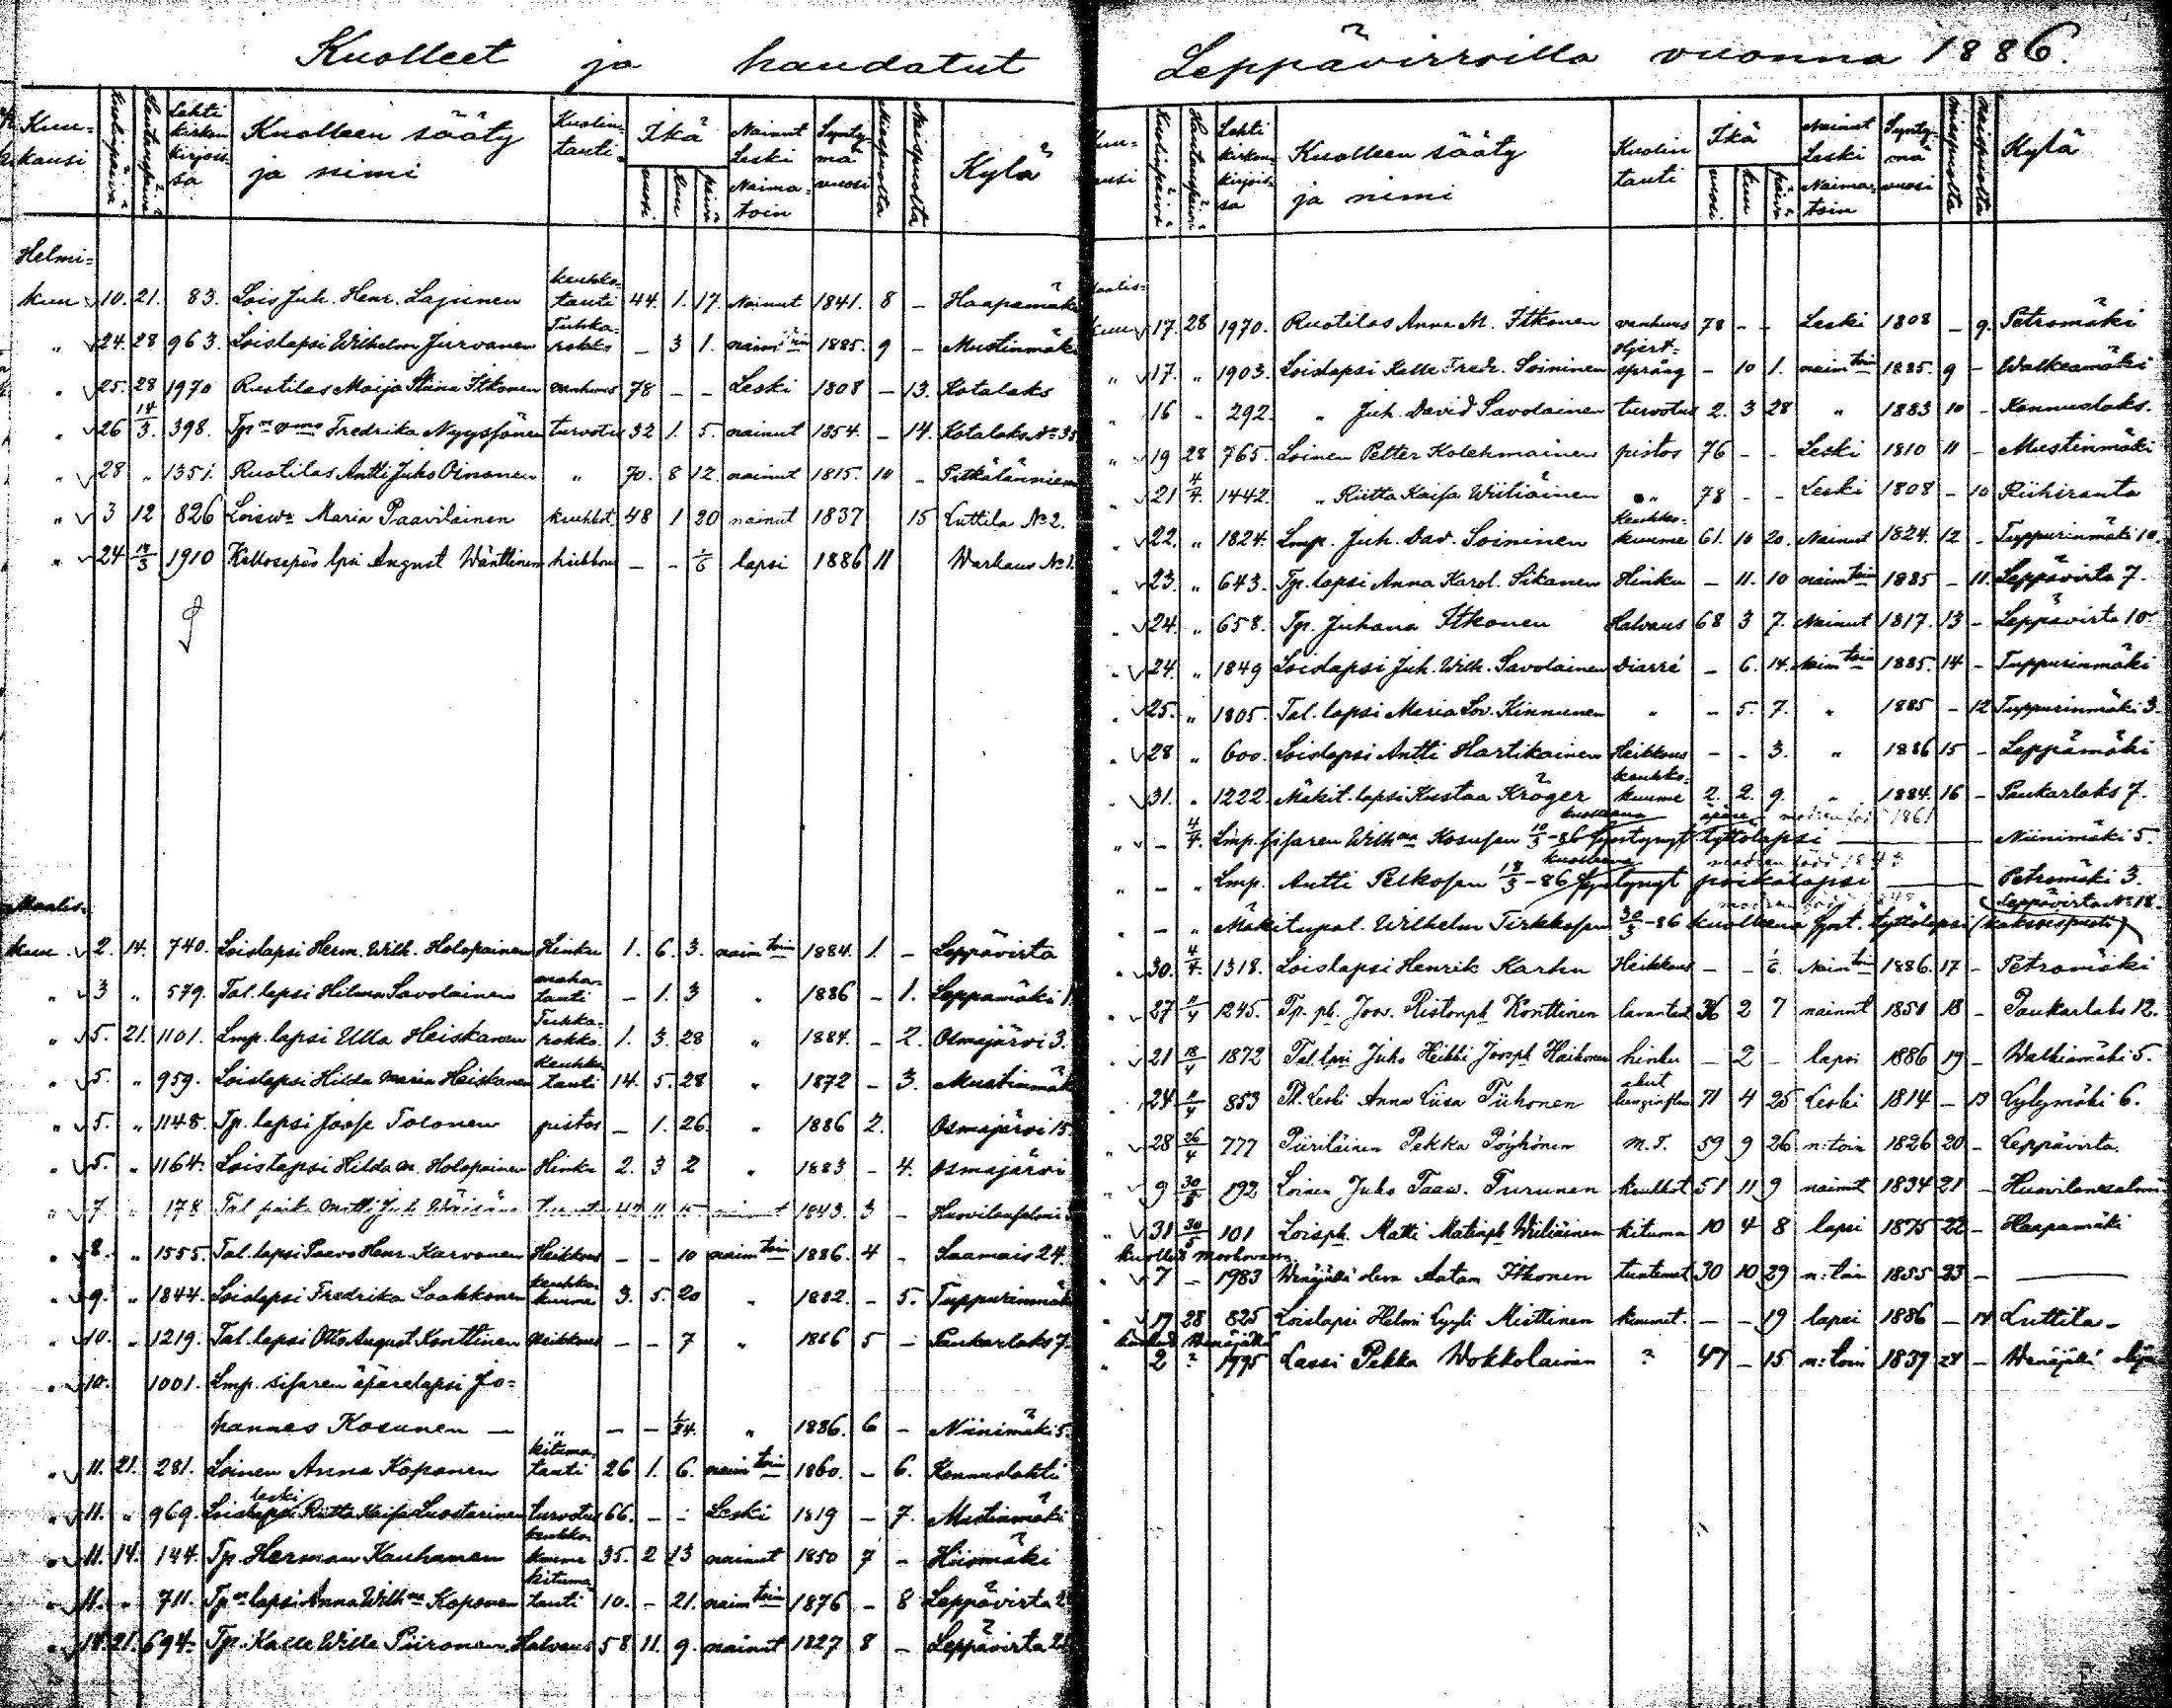 Kuolleet ja haudatut
Kuu-kausi Kuolinpäivä Hautauspäivä Lehti kirkon kirjois-sa Kuolleen sääty ja nimi Kuolin-tauti Ikä vuosi kuu päivä Nainut Leski Naima-toin Synty-mä vuosi Miespuolta Naispuolta Kylä
Helmi=
kuu 10. 21. 83. Lois Juh. Henr. Lajunen keuhko-tauti 44. 1. 17. Nainut 1841. 8 – Haapamäki
" 24. 28 963. Loislapsi Wilhelm Jurvanen Tuhka-rokko – 3 1. naim toin 1885. 9 – Mustinmäki
" 25. 28 1970 Ruotilas Maija Stina Itkonen vanhuus 78 – – Leski 1808 – 13. Kotalaks
" 26 14/3. 398. Tp:n vmo Fredrika Nyyssönen turvotus 32 1. 5. nainut 1854. – 14. Kotalaks No 35
" 28 " 1351. Ruotilas Antti Juho Oinonen " 70. 8 12. nainut 1815. 10 – Pitkälänniem
" 3 12 826 Loisvo Maria Paavilainen keuhkot. 48 1 20 nainut 1837 15 Luttila No 2.
" 24 14/3 1910 Kellosepän lpsi August Wänttinen heikkous – – 1/6 lapsi 1886 11 Warkaus No 1.
Maalis=
kuu 2. 14. 740. Loislapsi Herm. Wilh. Holopainen Hinku 1. 6. 3. naim toin 1884. 1. – Leppävirta
" 3 " 579. Tal. lapsi Hilma Savolainen maha-tauti – 1. 3 " 1886 – 1. Leppämäki 1.
" 5. 21. 1101. Lmp. lapsi Ulla Heiskanen Tuhka-rokko. 1. 3. 28 " 1884. – 2. Osmajärvi 3.
" 5. " 959. Loislapsi Hilda Maria Heiskanen keuhko-tauti 14. 5. 28 " 1872 – 3. Mustinmäk
" 5. " 1148. Tp. lapsi Joose Tolonen pistos – 1. 26. " 1886 2. Osmajärvi 15.
" 5. " 1164. Loislapsi Hilda M. Holopainen Hinku 2. 3 2 " 1883 – 4. Osmajärvi
" 7. " 178 Tal poika Matti Juh. Wäisänen 44 11. 15. nainut 1843. 3 –
" 8. " 1555. Tal. lapsi Paavo Henr. Karvonen Heikkous – – 10 naim toin 1886. 4 – Saamais 24.
" 9. " 1844. Loislapsi Fredrika Laakkonen keuhko-kuume 3. 5. 20 " 1882. – 5. Tuppurinmäk
" 10. " 1219. Tal. lapsi Otto August Konttinen Heikkous – – 7 " 1886 5 – Paukarlaks 7.
" 10. 1001. Lmp. sisaren äpärelapsi Jo=
hannes Kosunen – " – – 1/24. " 1886. 6 – Niinimäki 5.
" 11. 21. 281. Loinen Anna Koponen kituma-tauti 26 1. 6. naim toin 1860. – 6. Konnuslahti
" 11. " 969. Loislapsi leski Riitta Kaisa Luostarinen turvotus 66. – – Leski 1819 – 7. Mustinmäki
" 11. 14. 144. Tp. Herman Kauhanen keuhko-kuume 35. 2 13 nainut 1850 7 – Hiismäki
" 11. " 711. Tp:n lapsi Anna Wilh:na Koponen kituma-tauti 10. – 21. naim toin 1876 – 8 Leppävirta
" 18. 21. 694. Tp. Kalle Wille Piironen Halvaus 58 11. 9. nainut 1827 8 – Leppävirta
Leppävirroilla vuonna 1886.
Kuu-kausi Kuolinpäivä Hautauspäivä Lehti kirkon-kirjois-sa Kuolleen sääty ja nimi Kuolin tauti Ikä vuosi kuu päivä Nainut Leski Naima-toin Synty-mä vuosi Miespuolta Naispuolta Kylä
Maalis=
kuu 17. 28 1970. Ruotilas Anna M. Itkonen vanhuus 78 – – Leski 1808 – 9. Petromäki
" 17. " 1903. Loislapsi Kalle Fredr. Soininen Hjert-språng – 10 1. naim toin 1885. 9 – Walkeamäki
" 16 " 292. " Juh. David Savolainen turvotus 2. 3 28 " 1883 10 – Konnuslaks.
" 19 28 765. Loinen Petter Kolehmainen pistos 76 – – Leski 1810 11 – Mustinmäki
" 21 4/4. 1442. " Riitta Kaisa Wiiliäinen " 78 – – Leski 1808 – 10 Riihiranta
" 22. " 1824. Lmp. Juh. Dav. Soininen Keuhko-kuume 61. 10 20. Nainut 1824. 12 – Tuppurinmäki 10.
" 23. " 643. Tp. lapsi Anna Karol. Sikanen Hinku – 11. 10 naim toin 1885 – 11. Leppävirta 7.
" 24. " 658. Tp. Juhana Itkonen Halvaus 68 3 7. Nainut 1817. 13 – Leppävirta 10.
" 24. " 1849 Loislapsi Juh. Wilh. Savolainen Diarré – 6. 14. Naim toin 1885. 14 – Tuppurinmäki
" 25. " 1805. Tal. lapsi Maria Lov. Kinnunen " – 5. 7. " 1885 – 12 Tuppurinmäki 3.
" 28 " 600. Loislapsi Antti Hartikainen Heikkous – – 3. " 1886 15 – Leppämäki
" 31. " 1222. Mäkit. lapsi Kustaa Kröger keuhko-kuume 2. 2. 9. " 1884. 16 – Paukarlaks 7.
" – 4/4. Lmp. sisaren Wilh:na Kosusen 10/3 -86 kuolleena syntynyt äpäre tyttölapsi 1861 Niinimäki 5.
" – " Lmp. Antti Pelkosen 18/3 -86 kuolleena syntynyt poikalapsi Petromäki 3.
" – " Mäkitupal. Wilhelm Tirkkosen 30/3 -86 kuolleena synt. tyttölapsi (kaksoispuoli) Leppävirta No 18.
" 30. 4/4. 1318. Loislapsi Henrik Karhu Heikkous – – 1/6. Naim toin 1886. 17 – Petromäki
" 27 1245. Tp. ph. Joos. Ristonph Konttinen lavantat 36 2 7 nainut 1850 18 – Paukarlaks 12.
" 21 18/4 1872 Tal. lpsi Juho Heikki Joosph Haikonen hinku – 2 – lapsi 1886 19 – Walkiamäki 5.
" 24 853 Pl. Leski Anna Liisa Tiihonen akut lunginflm 71 4 25 Leski 1814 – 13 Lylymäki 6.
" 28 26/4 777 Piiriläinen Pekka Pöyhönen M. T. 59 9 26 n:toin 1826 20 – Leppävirta.
" 9 30/5 892 Loinen Juho Taav. Turunen keuhkot 51 11 9 nainut 1834 21 – Huovilansalmi
" 31 30/5 101 Loisph. Matti Matinph Wiiliäinen kituma 10 4 8 lapsi 1875 22 – Haapamäki
kuollut Moskovassa
" 7 – 1983 Wenäjällä oleva Aatam Itkonen tuntemat 30 10 29 n:toin 1855 23 –
" 17 28 825 Loislapsi Helmi Lyyli Miettinen kuumet. – – 19 lapsi 1886 – 14 Luttila –
kuollut Wenäjällä
" 2 ? 1995 Lassi Pekka Wokkolainen ? 47 – 15 n:toin 1839 24 – Wenäjällä olija